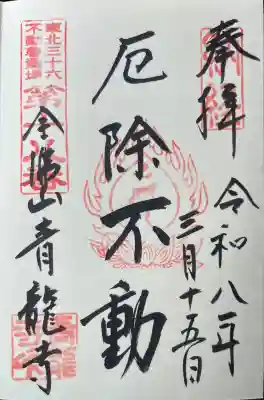 奉拝
令和八年
三月十五日
厄除不動
東北三十六
不動尊霊場
青龍寺